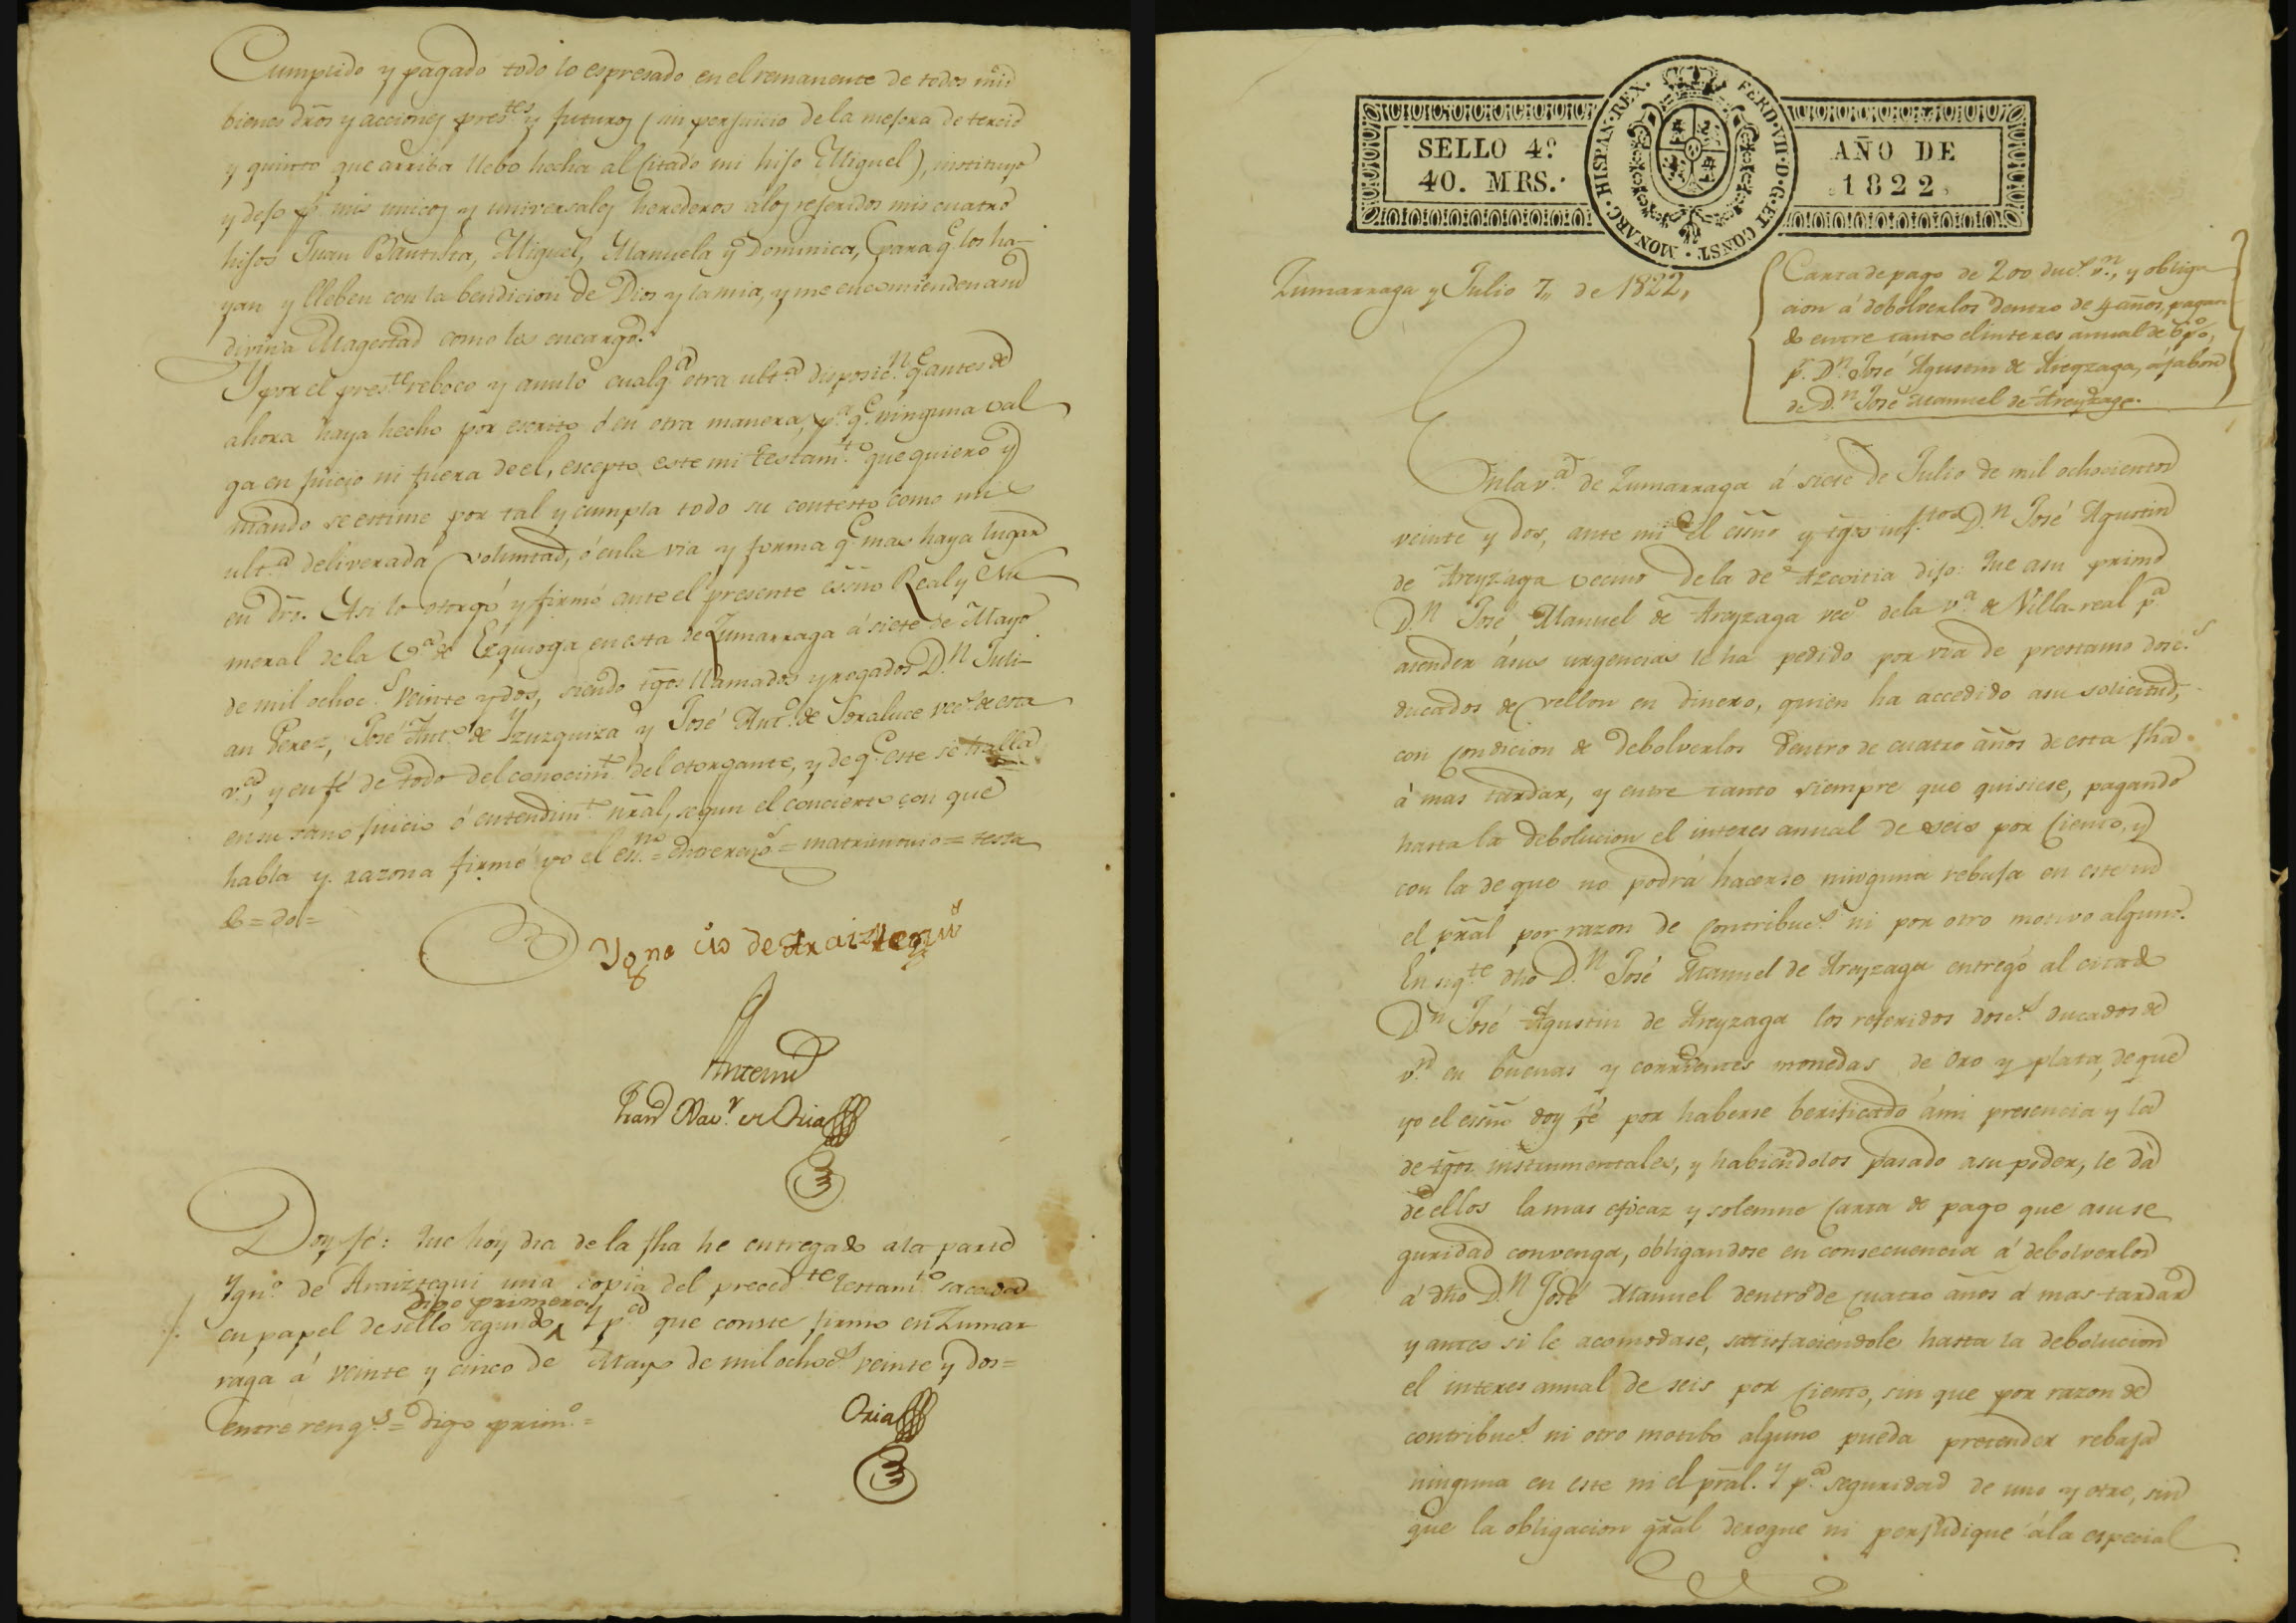 Cumplido y pagado todo lo espresado en el remanente de todos mis
bienes dr̃os y acciones pres.tes y futuros (sin perjuicio de la mejora de tercio
y quinto que arriba llebo hecha al citado mi hijo Miguel), instituyo
y dejo p.r mis unicos y universales herederos a los referidos mis cuatro
hijos Juan Bautista, Miguel, Manuela y Dominica, para q.e los ha-
yan y lleben con la bendicion de Dios y la mia, y me encomienden a su
divina Magestad como les encargo.
Y por el pres.te reboco y anulo cualq.a otra ult.a disposic.n q.e antes de
ahora haya hecho por escrito ó en otra manera, p.a q.e ninguna val
ga en juicio ni fuera de el, escepto este mi testam.to que quiero y
mando se estime por tal y cumpla todo su contesto como mi
ult.a deliverada voluntad, ó en la via y forma q.e mas haya lugar
en dr̃o. Asi lo otorgó y firmó ante el presente esc̃no Real y Nu
meral de la v.a de Ezquioga en esta de Zumarraga á siete de Mayo
de mil ochoc.s veinte y dos, siendo tg̃os llamados y rogados D.n Juli-
an Perez, José Ant.o de Yzuzquiza y José Ant.o de Soraluce vec.s de esta
v.a, y en fé de todo del conocim.to del otorgante, y de q.e este se halla
en su sano juicio ó entendim.to nr̃al, segun el concierto con que
habla y razona firmé yo el es.no = entrereng.s = matrimonio = testa
b = do =
Ygna cio de Araiztegui
Antemi
Fran.co Xav.r de Oria
Doy fé: Que hoy dia de la fha he entregado a la parte
Ygn.o de Araiztegui una copia del preced.te testam.to sacada
digo primero
en papel de sello segundo, Y p.a que conste firmo en Zumar
raga á veinte y cinco de Mayo de mil ochoc.s veinte y dos =
entre reng.s = digo prim.o =
Oria
SELLO 4º
40. MRS.
HISPAN. REX. FERD. VII. D. G. ET CONST. MONARC.
AÑO DE
1822
Zumarraga y Julio 7,, de 1822,
Carta de pago de 200 duc.s v.n, y obliga
cion á debolverlos dentro de 4 años, pagan
do entre tanto el interes annual de 6 p.o/o,
p.r D.n José Agustin de Areyzaga, á fabor
de D.n José Manuel de Areyzaga.
En la v.a de Zumarraga á siete de Julio de mil ochocientos
veinte y dos, ante mi el esc̃no y tg̃os inf.tos D.n José Agustin
de Areyzaga vecino de la de Azcoitia dijo: Que a su primo
D.n José Manuel de Areyzaga vec.o de la v.a de Villa-real p.a
atender á sus urgencias le ha pedido por via de prestamo dosc.s
ducados de vellon en dinero, quien ha accedido a su solicitud,
con condicion de debolverlos dentro de cuatro años de esta fha
à mas tardar, y entre tanto siempre que quisiese, pagando
hasta la debolucion el interes annual de seis por ciento, y
con la de que no podrá hacerse ninguna rebaja en este ni
el pr̃al por razon de contribuc.s ni por otro motivo alguno.
En sig.te dho D.n José Manuel de Areyzaga entregó al citado
D.n José Agustin de Areyzaga los referidos dosc.s ducados de
v.n en buenas y corrientes monedas de oro y plata, de que
yo el esc̃no doy fé por haberse berificado á mi presencia y la
de tg̃os instrumentales, y habiendolos pasado a su poder, le dá
de ellos la mas eficaz y solemne carta de pago que a su se
guridad convenga, óbligandose en consecuencia á debolverlos
á dho D.n José Manuel dentro de cuatro años á mas tardar
y antes si le acomodase, satisfaciéndole hasta la debolucion
el interes annual de seis por ciento, sin que por razon de
contribuc.s ni otro motibo alguno pueda pretender rebaja
ninguna en este ni el pr̃al. Y p.a seguridad de uno y otro, sin
que la obligacion gr̃al derogue ni perjudique á la especial